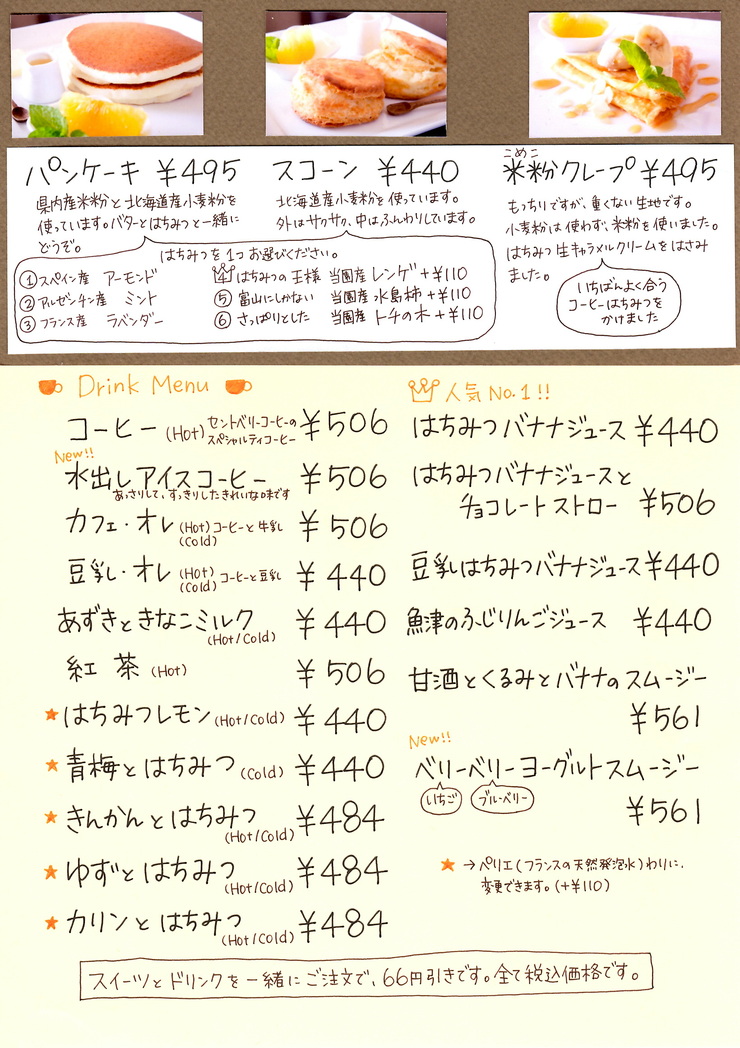 パンケーキ ¥495
県内産米粉と北海道産小麦粉を
使っています。バターとはちみつと一緒に
どうぞ。
スコーン ¥440
北海道産小麦粉を使っています。
外はサクサク、中はふんわりしています。
はちみつを1つお選びください。
①スペイン産 アーモンド
②アルゼンチン産 ミント
③フランス産 ラベンダー
4 はちみつの王様 当園産 レンゲ+¥110
⑤ 富山にしかない 当園産 水島柿+¥110
⑥ さっぱりとした 当園産 トチの木+¥110
こめこ
米粉クレープ ¥495
もっちりですが、重くない生地です。
小麦粉は使わず、米粉を使いました。
はちみつ生キャラメルクリームをはさみ
ました。
いちばんよく合う
コーヒーはちみつを
かけました
Drink Menu
コーヒー (Hot) セントベリーコーヒーの
スペシャルティコーヒー ¥506
New!!
水出しアイスコーヒー ¥506
あっさりして、すっきりしたきれいな味です
カフェ・オレ (Hot) コーヒーと牛乳 ¥506
(Cold)
豆乳・オレ (Hot) コーヒーと豆乳 ¥440
(Cold)
あずきときなこミルク ¥440
(Hot/Cold)
紅茶 (Hot) ¥506
★はちみつレモン (Hot/Cold) ¥440
★青梅とはちみつ (Cold) ¥440
★きんかんとはちみつ ¥484
(Hot/Cold)
★ゆずとはちみつ ¥484
(Hot/Cold)
★カリンとはちみつ ¥484
(Hot/Cold)
人気No.1!!
はちみつバナナジュース ¥440
はちみつバナナジュースと
チョコレートストロー ¥506
豆乳はちみつバナナジュース ¥440
魚津のふじりんごジュース ¥440
甘酒とくるみとバナナのスムージー
¥561
New!!
ベリーベリーヨーグルトスムージー
いちご ブルーベリー
¥561
★→ペリエ(フランスの天然発泡水)わりに、
変更できます。(+¥110)
スイーツとドリンクを一緒にご注文で、66円引きです。全て税込価格です。